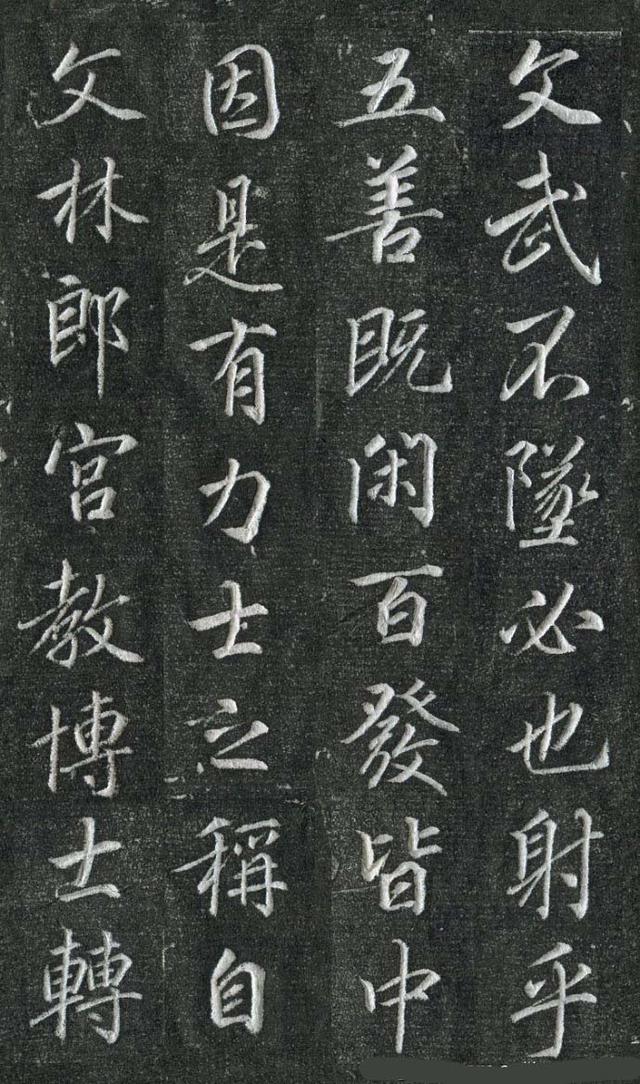 文武不墜必也射乎
五善既閑百發皆中
因是有力士之稱自
文林郎宮教博士轉